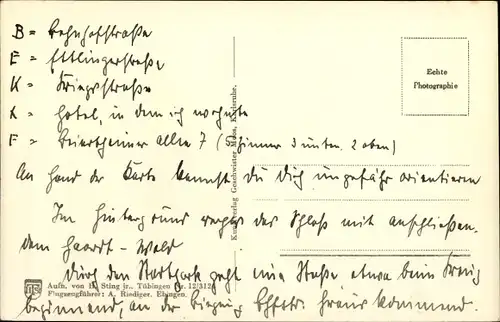 B = Bahnhofstraße
E = Ettlingerstraße
K = Kriegsstraße
X = Hotel, in dem ich wohnte
F = Beiertheimer Allee 7 (Zimmer 3 unten, 2 oben)
Echte
Photographie
An Hand der Karte kannst Du Dich ungefähr orientieren
Im Hintergrund rechts das Schloß mit anschließen-
dem Haardt-Wald
Durch den Stadtpark geht eine Straße etwa beim Kreuz
beginnend, an der Ettlstr. heraus kommend.
Kunstverlag Geschwister Moos, Karlsruhe.
Aufn. von H. Sting jr., Tübingen Nr. 12/312
Flugzeugführer: A. Riediger, Ebingen.